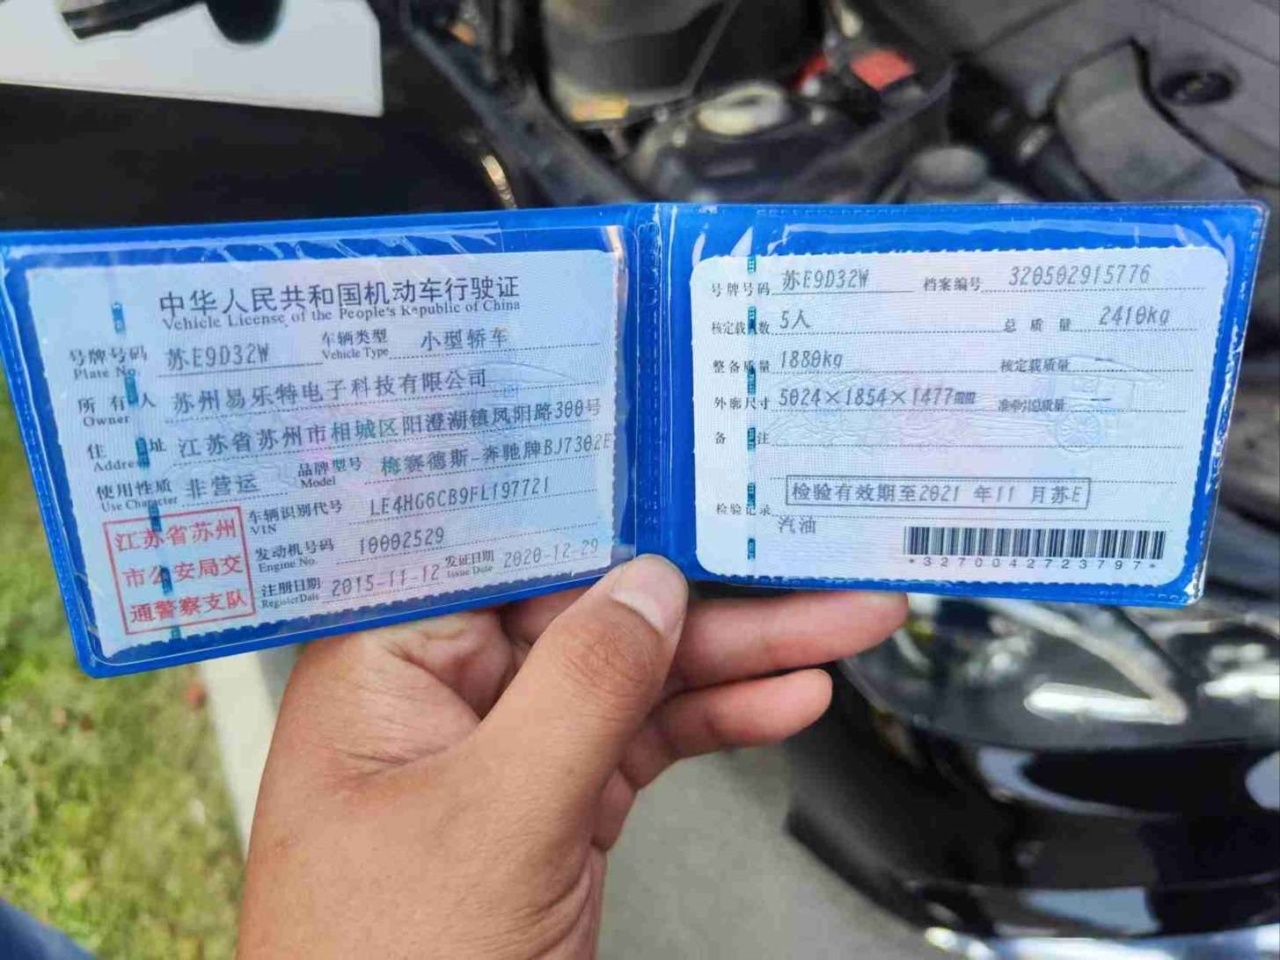 中华人民共和国机动车行驶证
Vehicle License of the People's Republic of China
号牌号码 苏E9D32W 车辆类型 小型轿车
Plate No. Vehicle Type
所有人 苏州易乐特电子科技有限公司
Owner
住址 江苏省苏州市相城区阳澄湖镇凤阳路300号
Address
使用性质 非营运 品牌型号 梅赛德斯-奔驰牌BJ7302E
Use Character Model
江苏省苏州
市公安局交
通警察支队
车辆识别代号 LE4HG6CB9FL197721
VIN
发动机号码 10002529
Engine No.
注册日期 2015-11-12 发证日期 2020-12-29
Register Date Issue Date
号牌号码 苏E9D32W 档案编号 320502915776
核定载人数 5人 总质量 2410kg
整备质量 1880kg 核定载质量
外廓尺寸 5024×1854×1477mm 准牵引总质量 —
备注
检验有效期至2021 年11 月苏E
检验记录
汽油
*3270042723797*